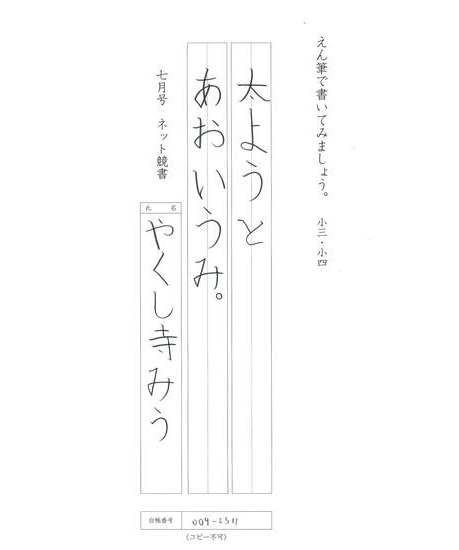 えん筆で書いてみましょう。 小三・小四
太ようと
あおいうみ。
七月号 ネット競書
氏名
やくし寺みう
台帳番号 009-2311
(コピー不可)